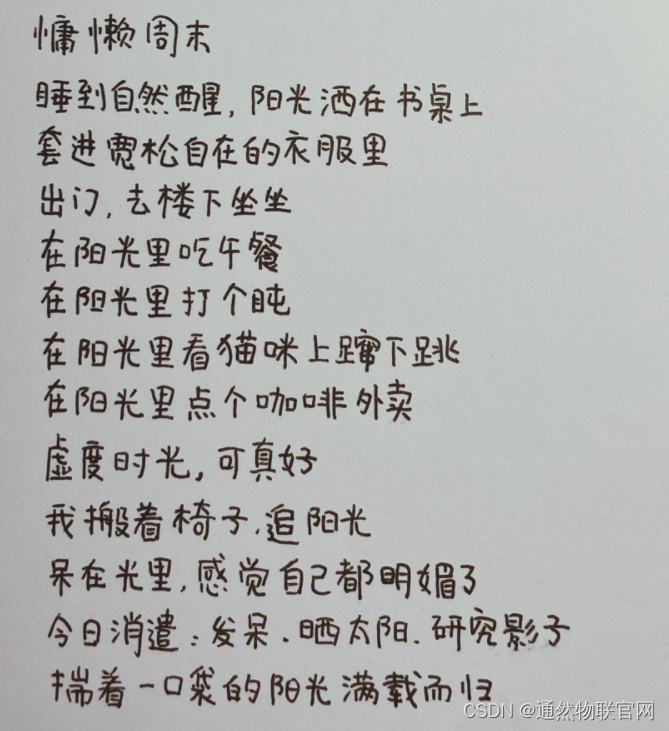 慵懒周末
睡到自然醒,阳光洒在书桌上
套进宽松自在的衣服里
出门,去楼下坐坐
在阳光里吃午餐
在阳光里打个盹
在阳光里看猫咪上蹿下跳
在阳光里点个咖啡外卖
虚度时光,可真好
我搬着椅子,追阳光
呆在光里,感觉自己都明媚了
今日消遣:发呆.晒太阳.研究影子
揣着一口袋的阳光满载而归
CSDN @通然物联官网